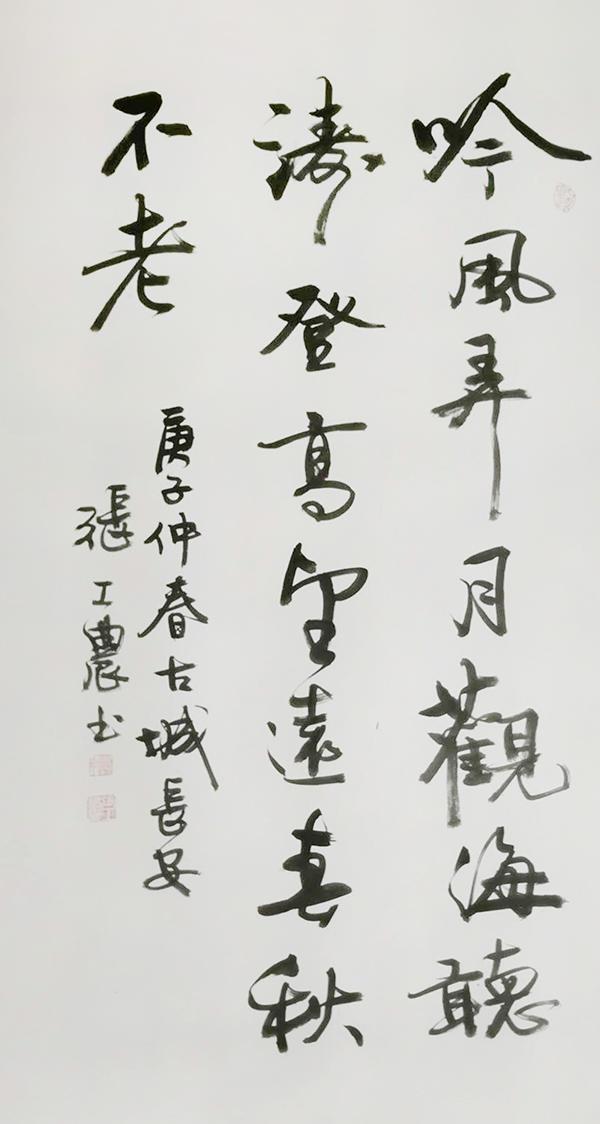 吟風弄月觀海聽
濤登高望遠春秋
不老
庚子仲春古城長安
張工農书